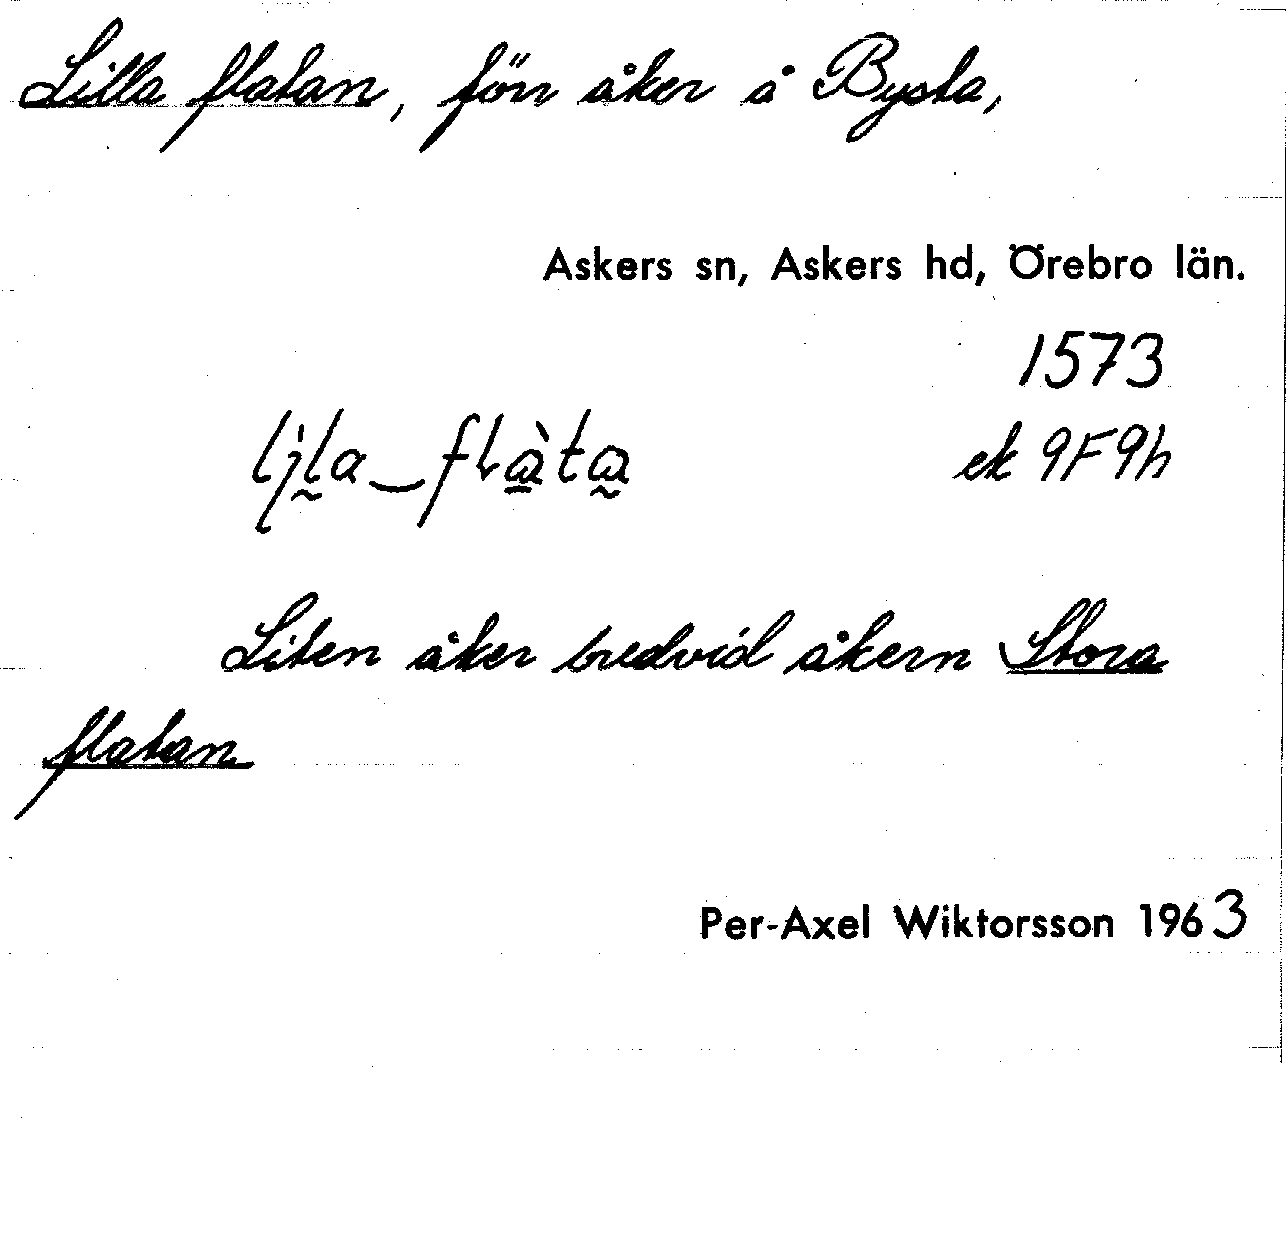 Lilla flatan, förr åker å Bysta,
Askers sn, Askers hd, Örebro län.
1573
ek 9F9h
Liten åker bredvid åkern Stora
flatan
Per-Axel Wiktorsson 1963